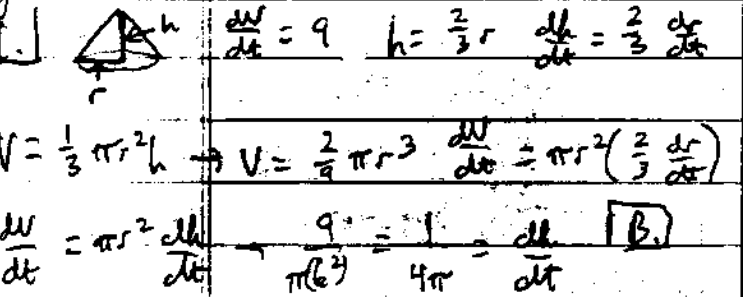 1. h r dW/dt = 9 h = 2/3 r dh/dt = 2/3 dr/dt
V = 1/3 πr²h → V = 2/9 πr³ dW/dt = πr²(2/3 dr/dt)
dW/dt = πr² dh/dt → 9/π(6²) = 1/4π = dh/dt B.